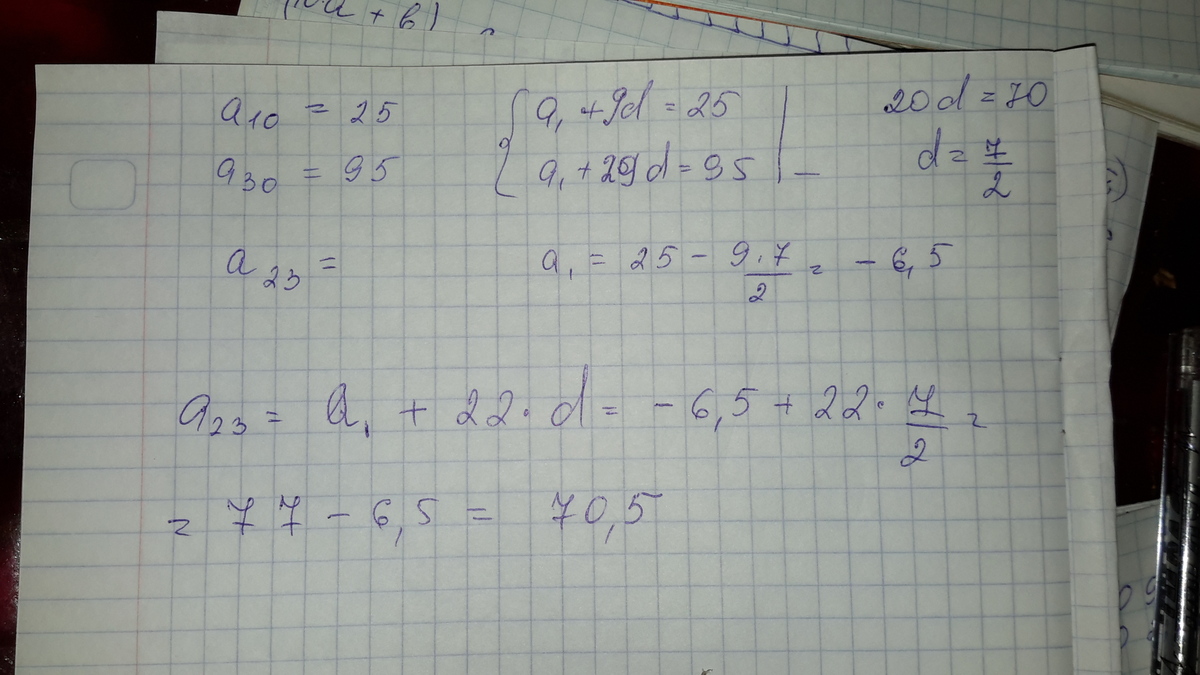 (10a + b)
a₁₀ = 25
a₃₀ = 95
{ a₁ + 9d = 25
a₁ + 29d = 95 | −
20d = 70
d = 7/2
a₂₃ =
a₁ = 25 − 9·7/2 = − 6,5
a₂₃ = a₁ + 22· d = − 6,5 + 22· 7/2 =
= 77 − 6,5 = 70,5